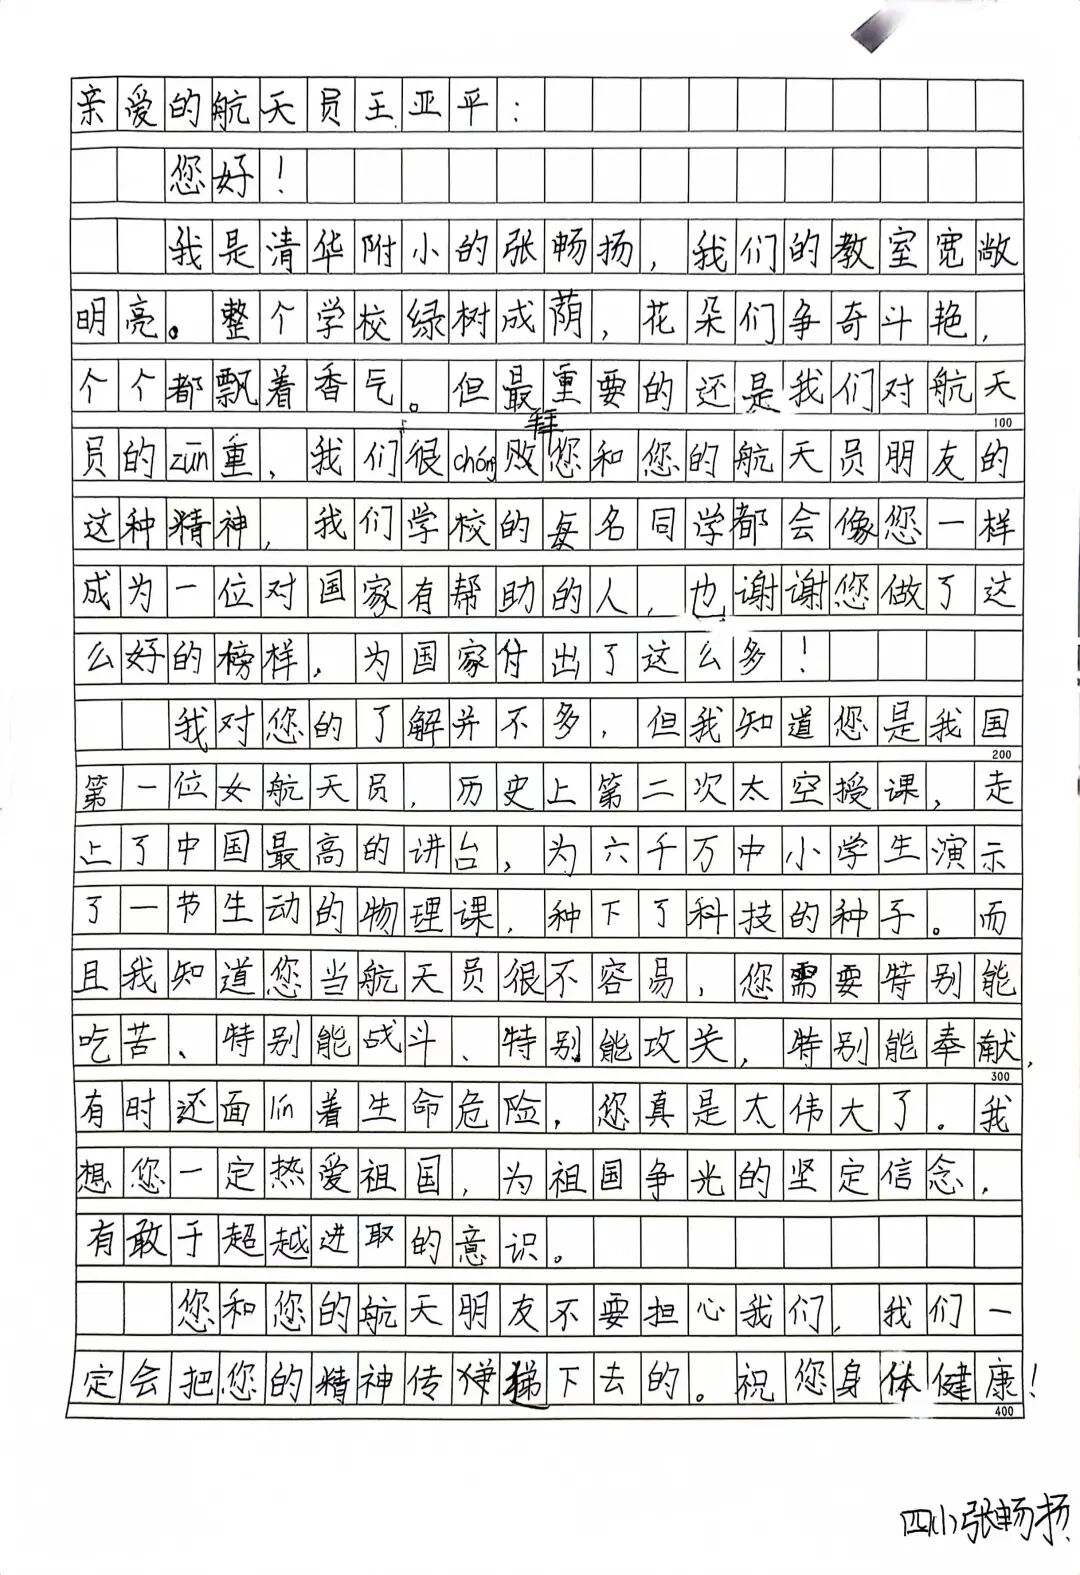 亲爱的航天员王亚平：
您好！
我是清华附小的张畅扬，我们的教室宽敞
明亮。整个学校绿树成荫，花朵们争奇斗艳，
个个都飘着香气。但最重要的还是我们对航天
员的zūn重，我们很chóng败您和您的航天员朋友的
这种精神，我们学校的每名同学都会像您一样
成为一位对国家有帮助的人，也谢谢您做了这
么好的榜样，为国家付出了这么多！
我对您的了解并不多，但我知道您是我国
第一位女航天员，历史上第二次太空授课，走
上了中国最高的讲台，为六千万中小学生演示
了一节生动的物理课，种下了科技的种子。而
且我知道您当航天员很不容易，您需要特别能
吃苦、特别能战斗、特别能攻关，特别能奉献，
有时还面lín着生命危险，您真是太伟大了。我
想您一定热爱祖国，为祖国争光的坚定信念，
有敢于超越进取的意识。
您和您的航天朋友不要担心我们，我们一
定会把您的精神传递下去的。祝您身体健康！
四小张畅扬
100
200
300
400